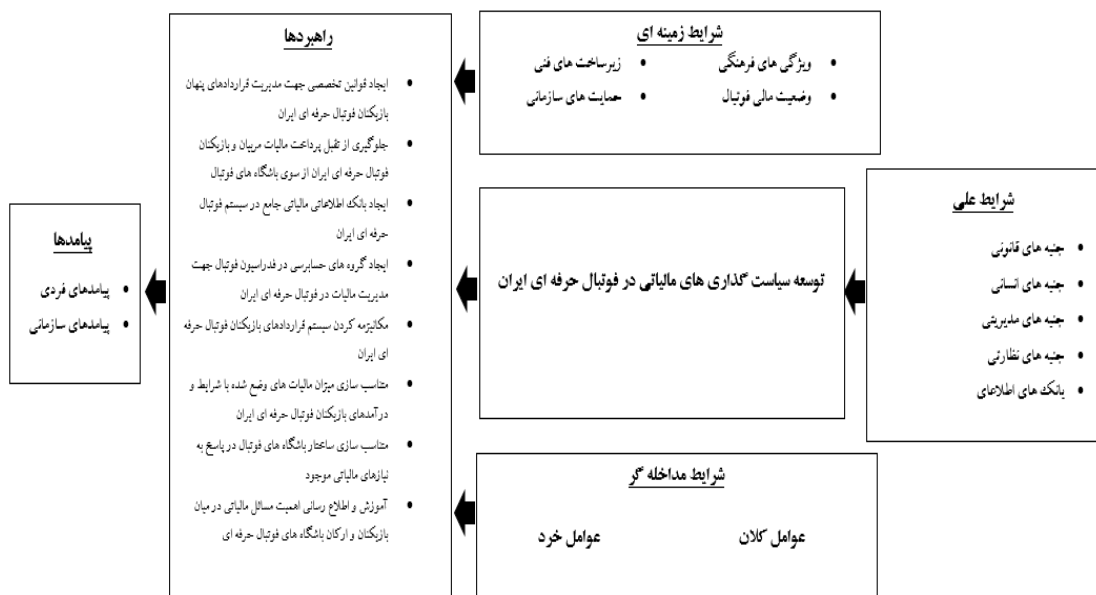 شرایط زمینه ای
ویژگی های فرهنگی
زیرساخت های فنی
وضعیت مالی فوتبال
حمایت های سازمانی
شرایط علی
جنبه های قانونی
جنبه های انسانی
جنبه های مدیریتی
جنبه های نظارتی
بانک های اطلاعای
توسعه سیاست گذاری های مالیاتی در فوتبال حرفه ای ایران
شرایط مداخله گر
عوامل کلان
عوامل خرد
راهبردها
ایجاد قوانین تخصصی جهت مدیریت قراردادهای پنهان
بازیکنان فوتبال حرفه ای ایران
جلوگیری از تقبل پرداخت مالیات مربیان و بازیکنان
فوتبال حرفه ای ایران از سوی باشگاه های فوتبال
ایجاد بانک اطلاعاتی مالیاتی جامع در سیستم فوتبال
حرفه ای ایران
ایجاد گروه های حسابرسی در فدراسیون فوتبال جهت
مدیریت مالیات در فوتبال حرفه ای ایران
مکانیزمه کردن سیستم قراردادهای بازیکنان فوتبال حرفه
ای ایران
متناسب سازی میزان مالیات های وضع شده با شرایط و
درآمدهای بازیکنان فوتبال حرفه ای ایران
متناسب سازی ساختار باشگاه های فوتبال در پاسخ به
نیازهای مالیاتی موجود
آموزش و اطلاع رسانی اهمیت مسائل مالیاتی در میان
بازیکنان و ارکان باشگاه های فوتبال حرفه ای
پیامدها
پیامدهای فردی
پیامدهای سازمانی